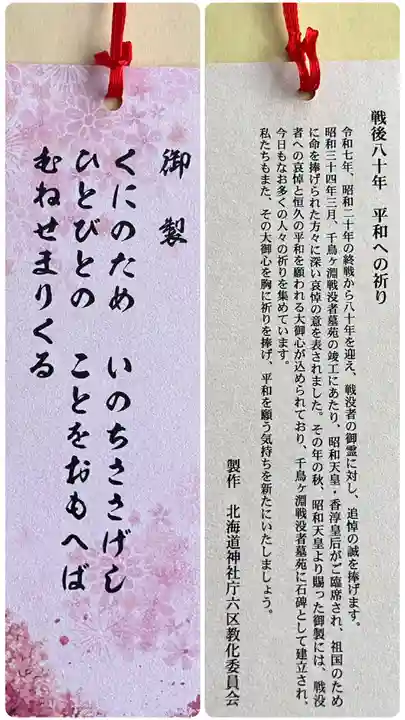 御製
くにのため いのちささげし
ひとびとの ことをおもへば
むねせまりくる
戦後八十年 平和への祈り
令和七年、昭和二十年の終戦から八十年を迎え、戦没者の御霊に対し、追悼の誠を捧げます。
昭和三十四年三月、千鳥ヶ淵戦没者墓苑の竣工にあたり、昭和天皇・香淳皇后がご臨席され、祖国のため
に命を捧げられた方々に深い哀悼の意を表されました。その年の秋、昭和天皇より賜った御製には、戦没
者への哀悼と恒久の平和を願われる大御心が込められており、千鳥ヶ淵戦没者墓苑に石碑として建立され、
今日もなお多くの人々の祈りを集めています。
私たちもまた、その大御心を胸に祈りを捧げ、平和を願う気持ちを新たにいたしましょう。
製作 北海道神社庁六区教化委員会